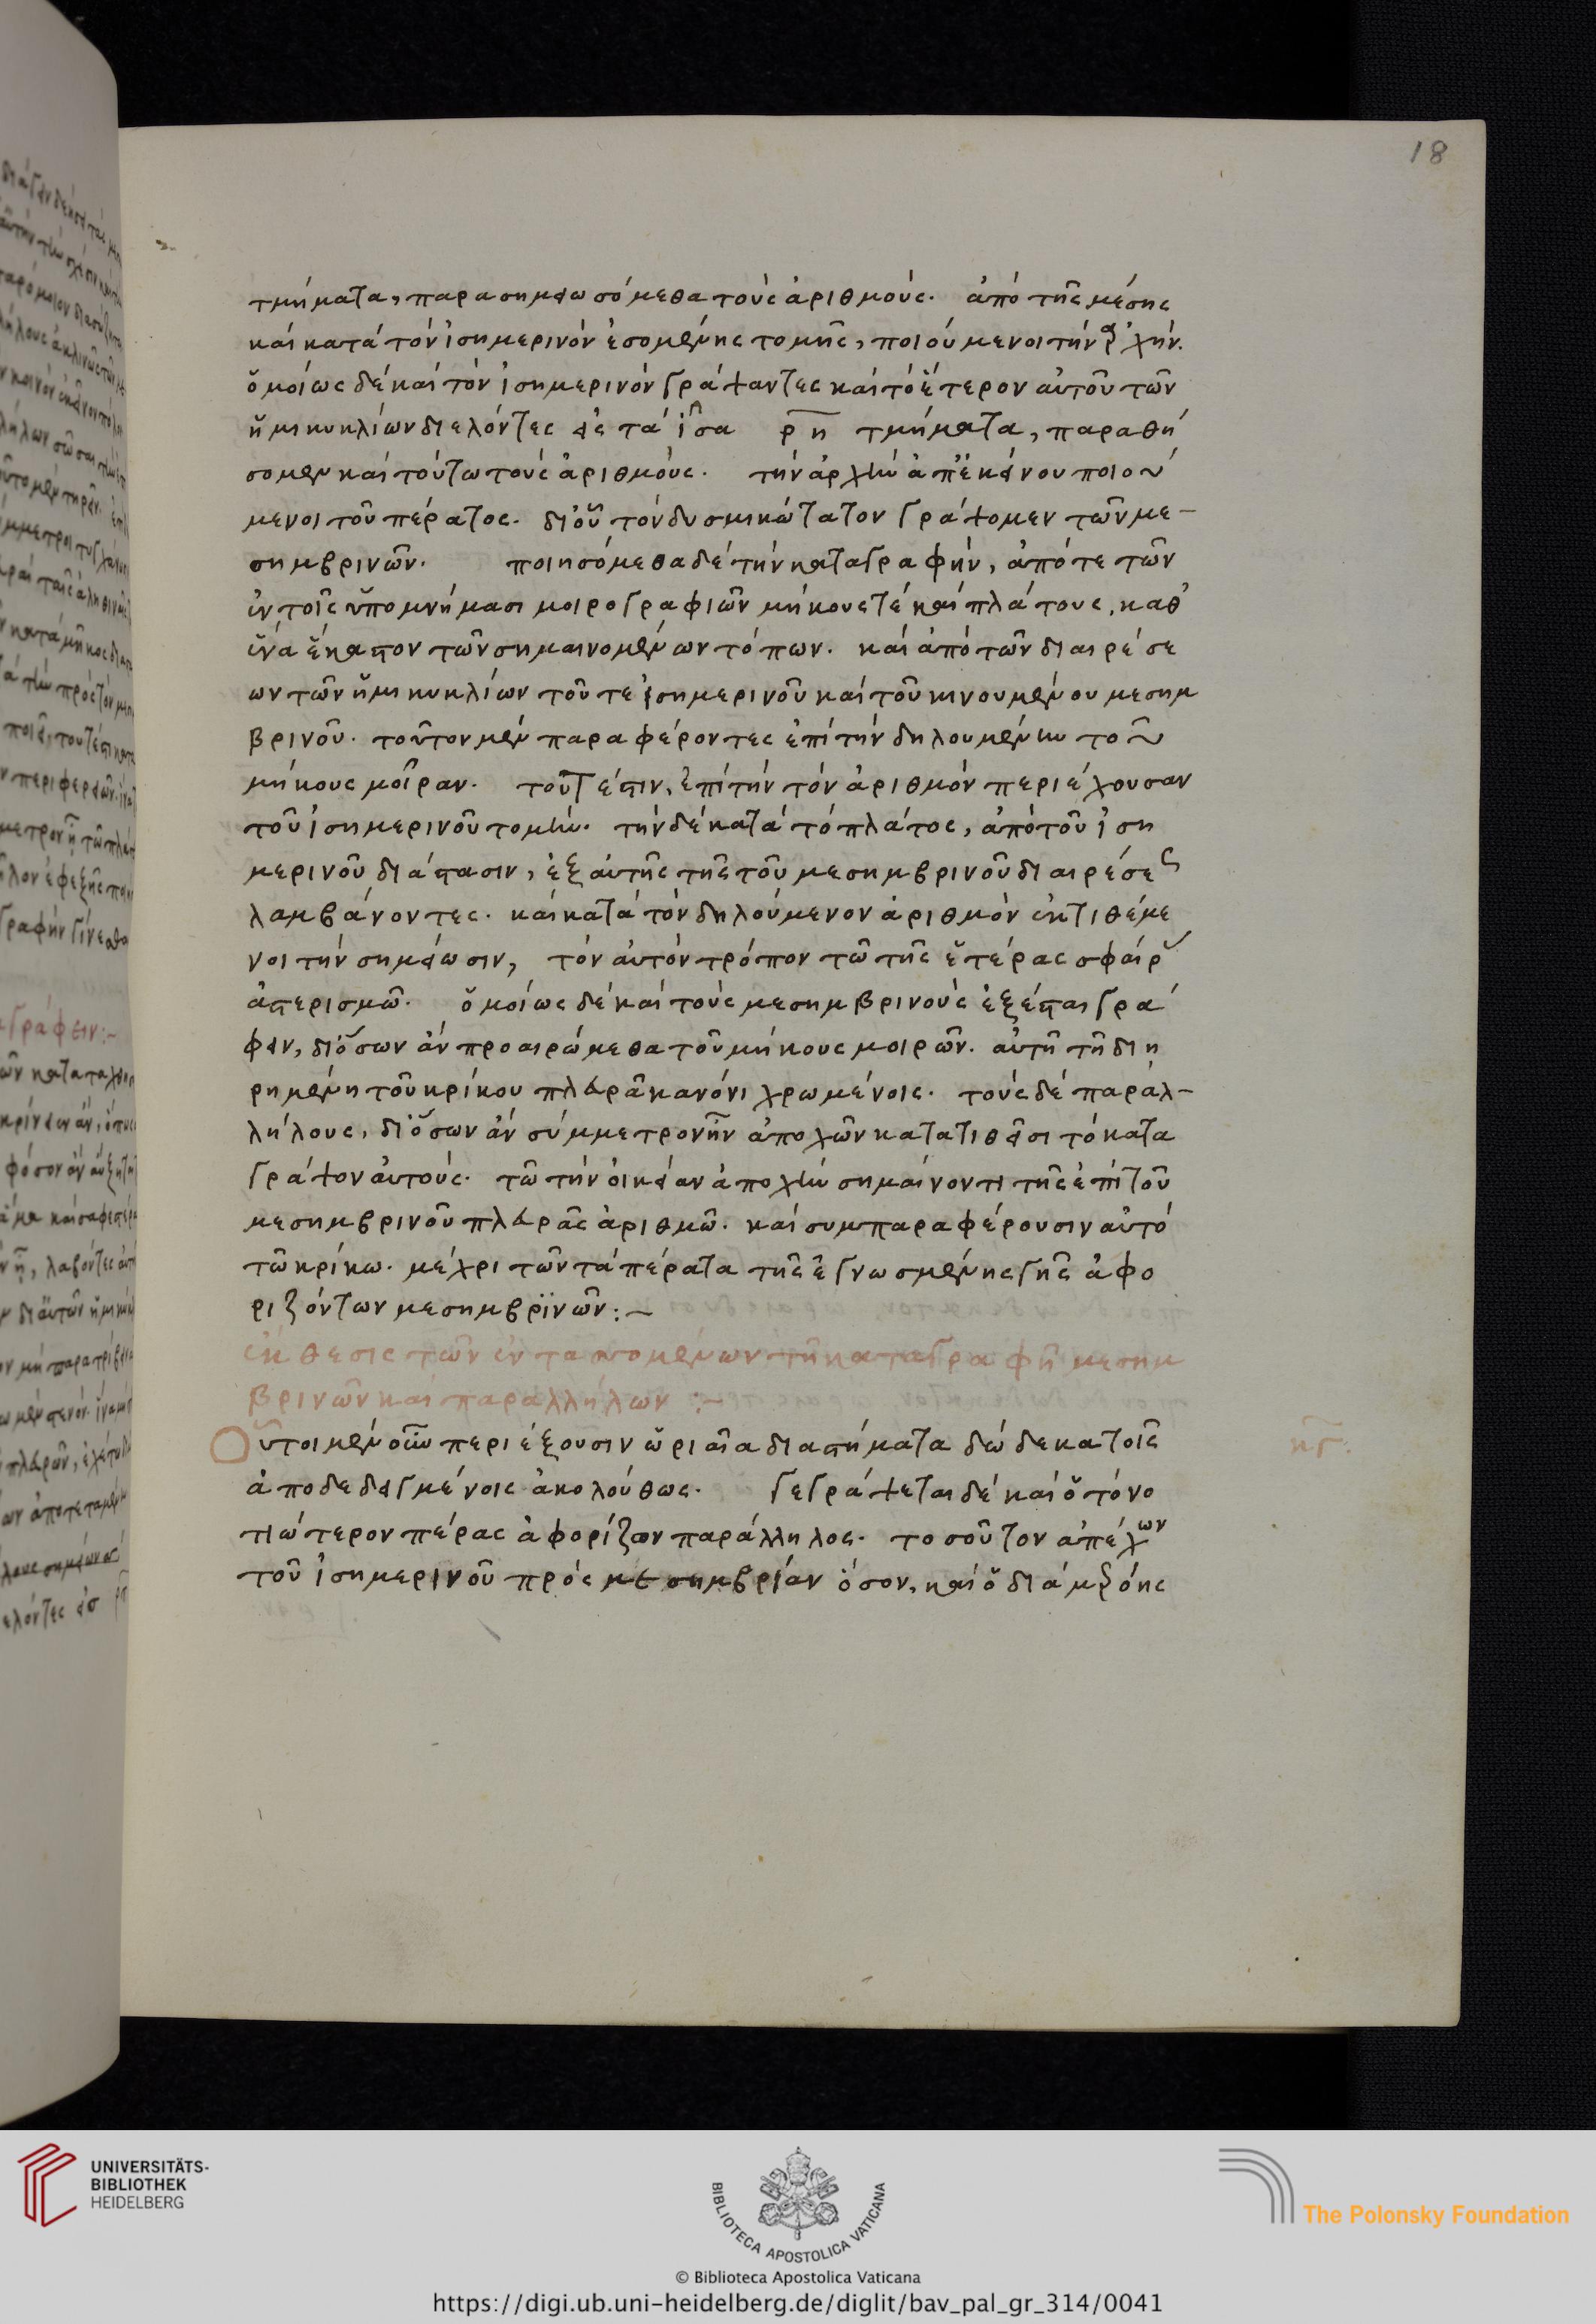 18
τμήματα, παρασημειωσόμεθα τοὺς ἀριθμούς. ἀπὸ τῆς μέσης
καὶ κατὰ τὸν ἰσημερινὸν ἐσομένης τομῆς, ποιούμενοι τὴν ἀρχήν.
ὁμοίως δὲ καὶ τὸν ἰσημερινὸν γράψαντες καὶ τὸ ἕτερον αὐτοῦ τῶν
ἡμικυκλίων διελόντες εἰς τὰ ἶσα ρπ τμήματα, παραθή
σομεν καὶ τούτω τοὺς ἀριθμούς. τὴν ἀρχὴν ἀπ' ἐκείνου ποιού
μενοι τοῦ πέρατος. δι' οὗ τὸν δυσμικώτατον γράψομεν τῶν με-
σημβρινῶν. ποιησόμεθα δὲ τὴν καταγραφήν, ἀπό τε τῶν
ἐν τοῖς ὑπομνήμασι μοιρογραφιῶν μήκους τὲ καὶ πλάτους, καθ'
ἕνα ἕκαστον τῶν σημαινομένων τόπων. καὶ ἀπὸ τῶν διαιρέσε
ων τῶν ἡμικυκλίων τοῦ τε ἰσημερινοῦ καὶ τοῦ κινουμένου μεσημ
βρινοῦ. τοῦτον μὲν παραφέροντες ἐπὶ τὴν δηλουμένην τοῦ
μήκους μοῖραν. τοῦτέστιν, ἐπὶ τὴν τὸν ἀριθμὸν περιέχουσαν
τοῦ ἰσημερινοῦ τομήν. τὴν δὲ κατὰ τὸ πλάτος, ἀπὸ τοῦ ἰση
μερινοῦ διάστασιν, ἐξ αὐτῆς τῆς τοῦ μεσημβρινοῦ διαιρέσεως
λαμβάνοντες. καὶ κατὰ τὸν δηλούμενον ἀριθμὸν ἐκτιθέμε
νοι τὴν σημείωσιν, τὸν αὐτὸν τρόπον τῶ τῆς ἑτέρας σφαίρας
ἀστερισμῶ. ὁμοίως δὲ καὶ τοὺς μεσημβρινοὺς ἐξέσται γρά
φειν, δι' ὅσων ἂν προαιρώμεθα τοῦ μήκους μοιρῶν. αὐτῆ τῆ διη
ρημένη τοῦ κρίκου πλευρᾶ κανόνι χρωμένοις. τοὺς δὲ παραλ-
λήλους, δι' ὅσων ἂν σύμμετρον ἦν ἀποχῶν κατατιθεῖσι τὸ κατα
γράψον αὐτούς. τῶ τὴν οἰκείαν ἀποχὴν σημαίνοντι τῆς ἐπὶ τοῦ
μεσημβρινοῦ πλευρᾶς ἀριθμῶ. καὶ συμπαραφέρουσιν αὐτὸ
τῶ κρίκω. μέχρι τῶν τὰ πέρατα τῆς ἐγνωσμένης γῆς ἀφο
ριζόντων μεσημβρινῶν:–
ἔκθεσις τῶν ἐντασσομένων τῆ καταγραφῆ μεσημ
βρινῶν καὶ παραλλήλων :–
Οὗτοι μὲν οὖν περιέξουσιν ὡριαῖα διαστήματα δώδεκα τοῖς κγ:
ἀποδεδειγμένοις ἀκολούθως. γεγράψεται δὲ καὶ ὁ τὸ νο
τιώτερον πέρας ἀφορίζων παράλληλος. τοσοῦτον ἀπέχων
τοῦ ἰσημερινοῦ πρὸς μεσημβρίαν ὅσον, καὶ ὁ διὰ μερόης
UNIVERSITÄTS-
BIBLIOTHEK
HEIDELBERG
BIBLIOTECA APOSTOLICA VATICANA
© Biblioteca Apostolica Vaticana
The Polonsky Foundation
https://digi.ub.uni-heidelberg.de/diglit/bav_pal_gr_314/0041